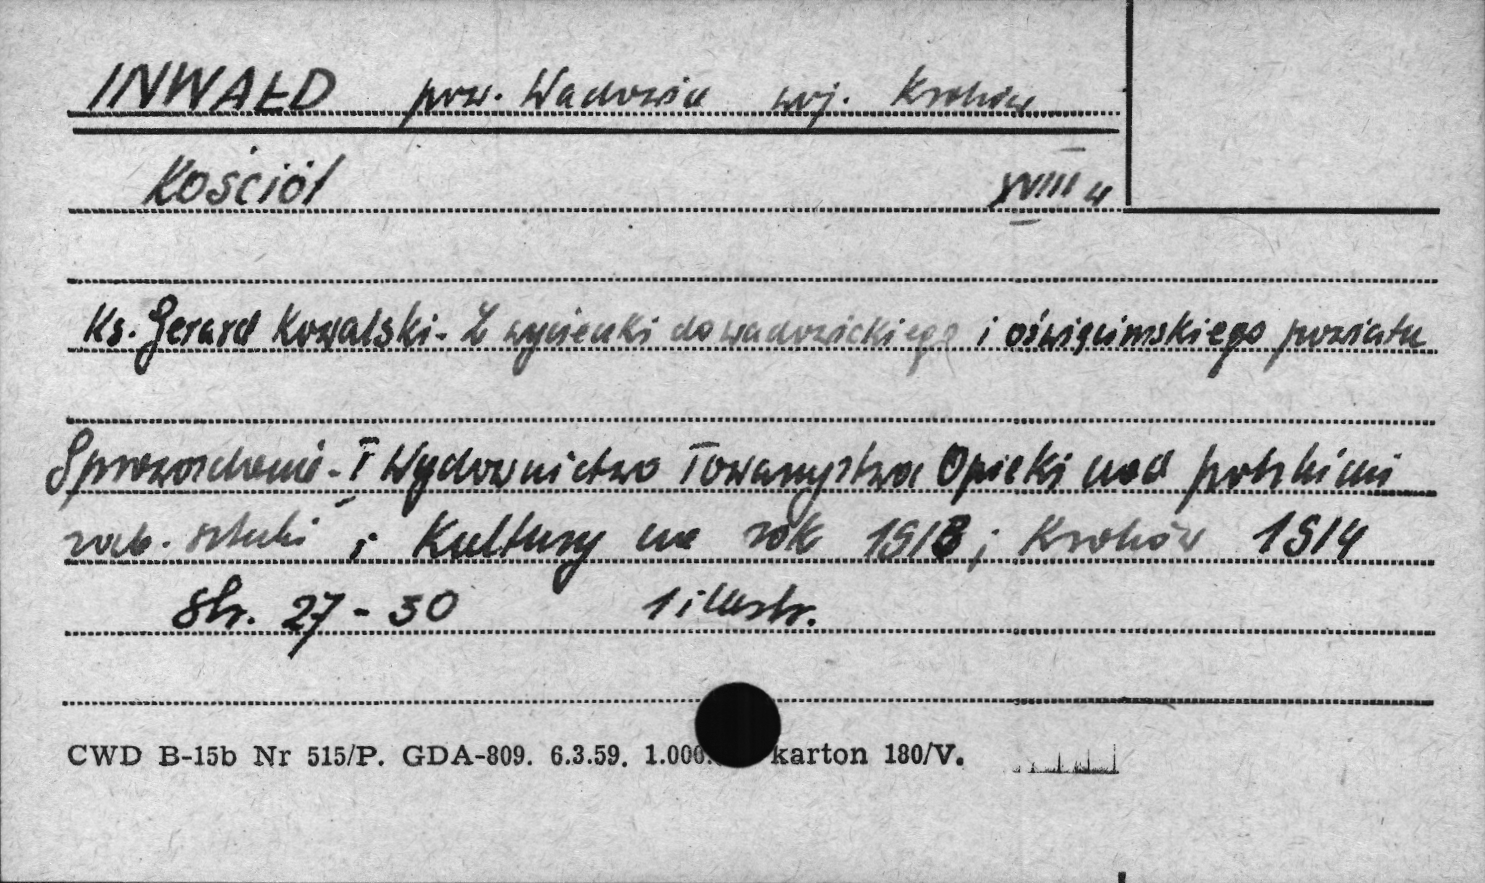 INWAŁD pow. Wadowice woj. Kraków
Kościół XVIII w
Ks. Gerard Kowalski - Z wycieczki do wadowickiego i oświęcimskiego powiatu
Sprawozdanie - I Wydawnictwo Towarzystwa Opieki nad polskimi
zab. sztuki i Kultury na rok 1913; Kraków 1914
Str. 27-30 1 illustr.
CWD B-15b Nr 515/P. GDA-809. 6.3.59. 1.000. karton 180/V.